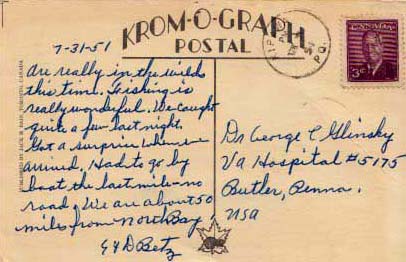 KROM-O-GRAPH
POSTAL
7-31-51
Are really in the wilds
this time. Fishing is
really wonderful. We caught
quite a few last night.
Got a surprise when we
arrived. Had to go by
boat the last mile-no
road. We are about 50
miles from North Bay.
G & D Betz
PUBLISHED BY JACK H. BAIN, TORONTO, CANADA
P.Q.
CANADA
3¢
Dr George C Glinsky
Va Hospital #5175
Butler, Penna.
USA